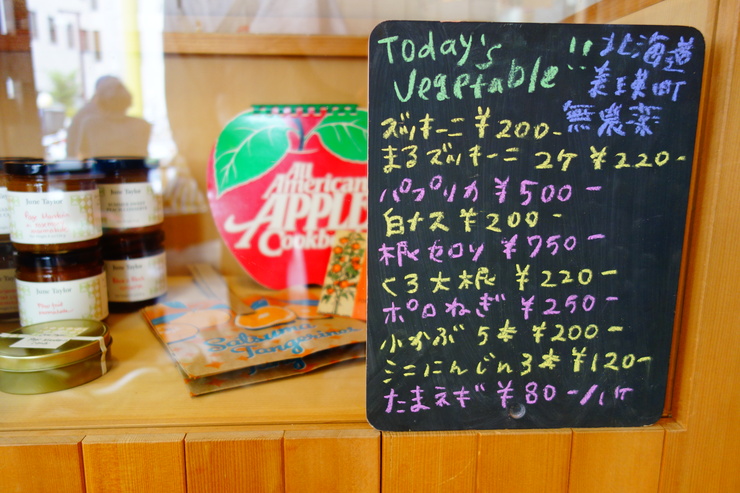 Today's
Vegetable!!
北海道
美瑛町
無農薬
ズッキーニ ¥200-
まるズッキーニ 2ケ ¥220-
パプリカ ¥500-
白ナス ¥200-
根セロリ ¥750-
くろ大根 ¥220-
ポロねぎ ¥250-
小かぶ 5本 ¥200-
ミニにんじん3本 ¥120-
たまネギ ¥80-/1ケ
All
American
APPLE
Cookbook
Satsuma
Tangerines
June Taylor
June Taylor
June Taylor